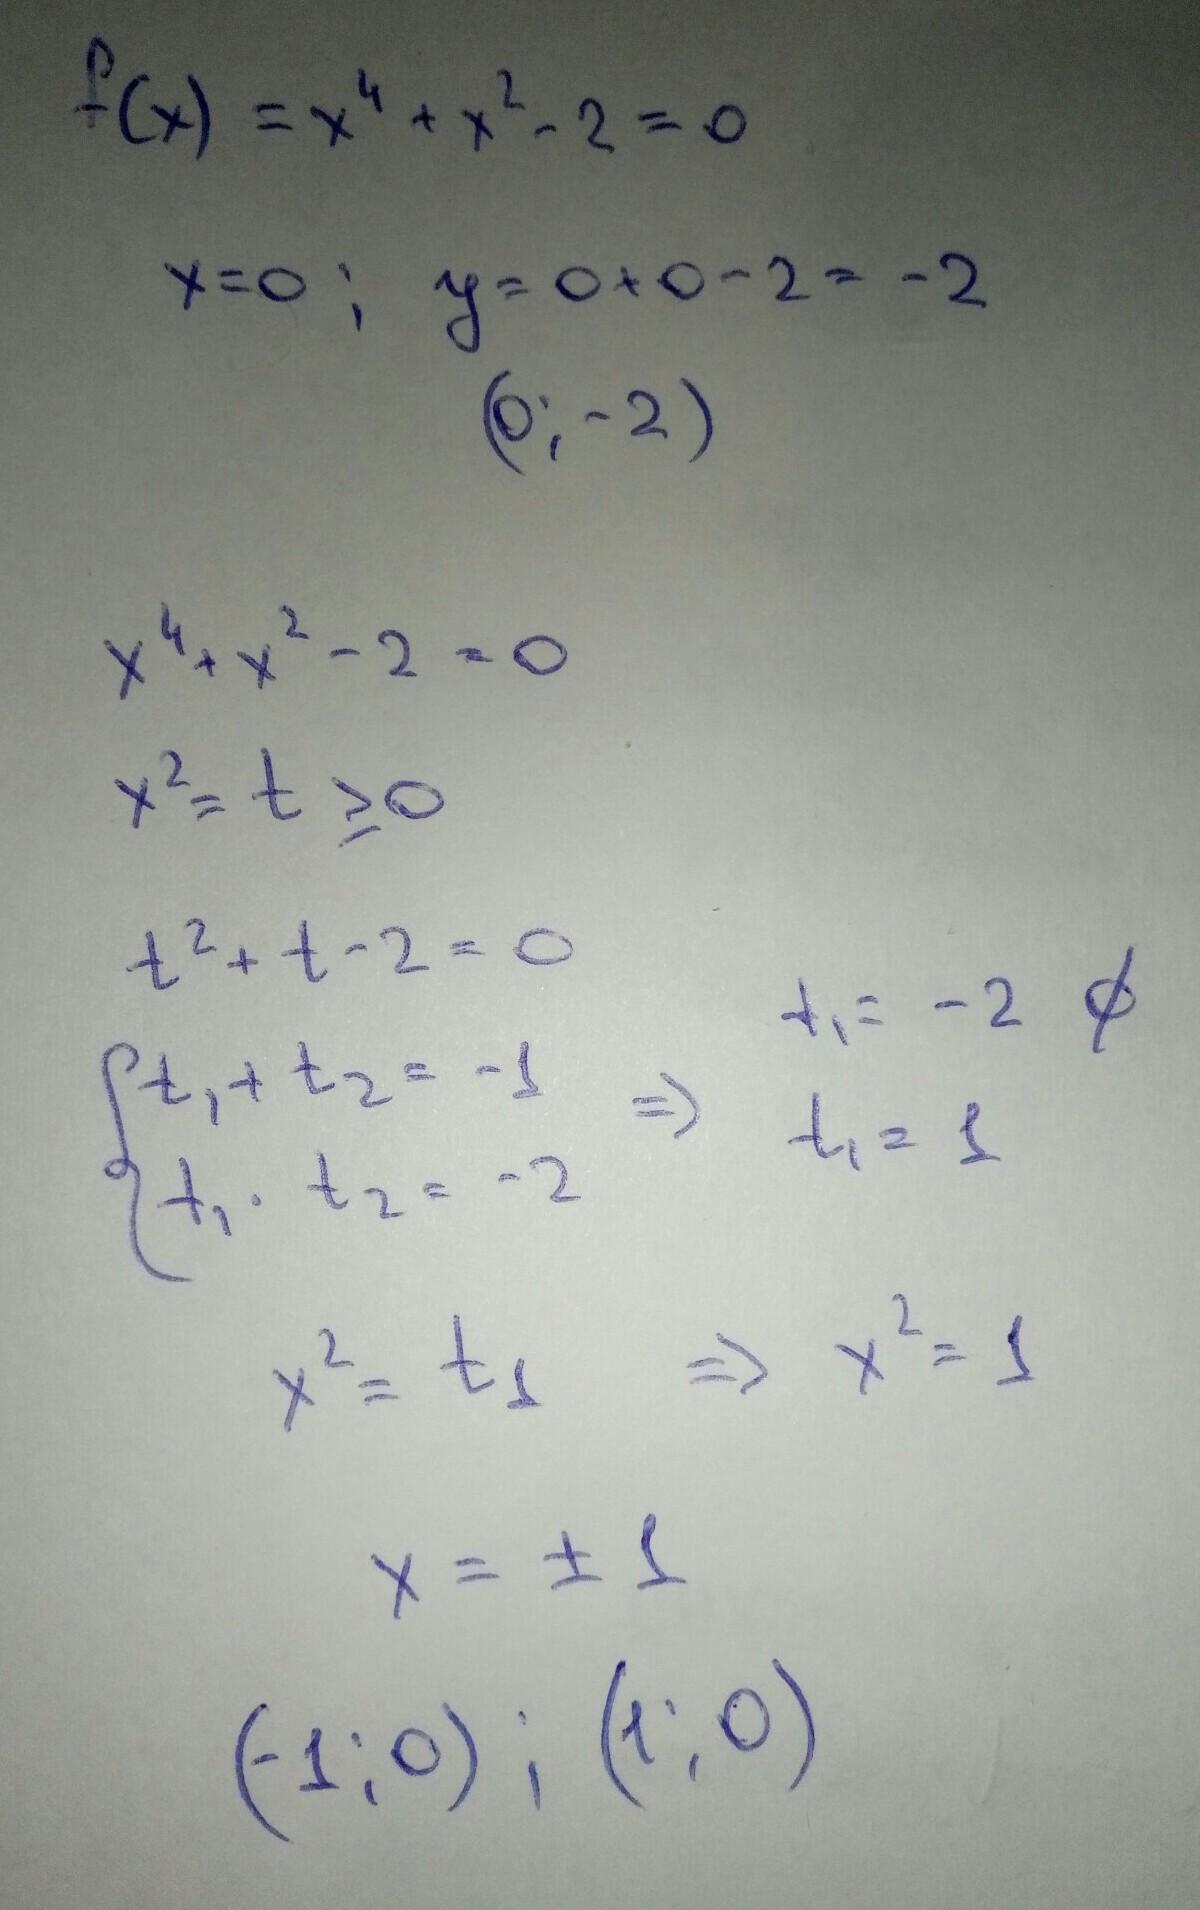 f(x) = x⁴ + x² - 2 = 0
x=0; y= 0+0-2= -2
(0; -2)
x⁴ + x² - 2 = 0
x² = t ≥ 0
t² + t - 2 = 0
{ t₁ + t₂ = -1
t₁ · t₂ = -2
=> t₁ = -2 ∅
t₁ = 1
x² = t₁ => x² = 1
x = ± 1
(-1; 0) ; (1; 0)